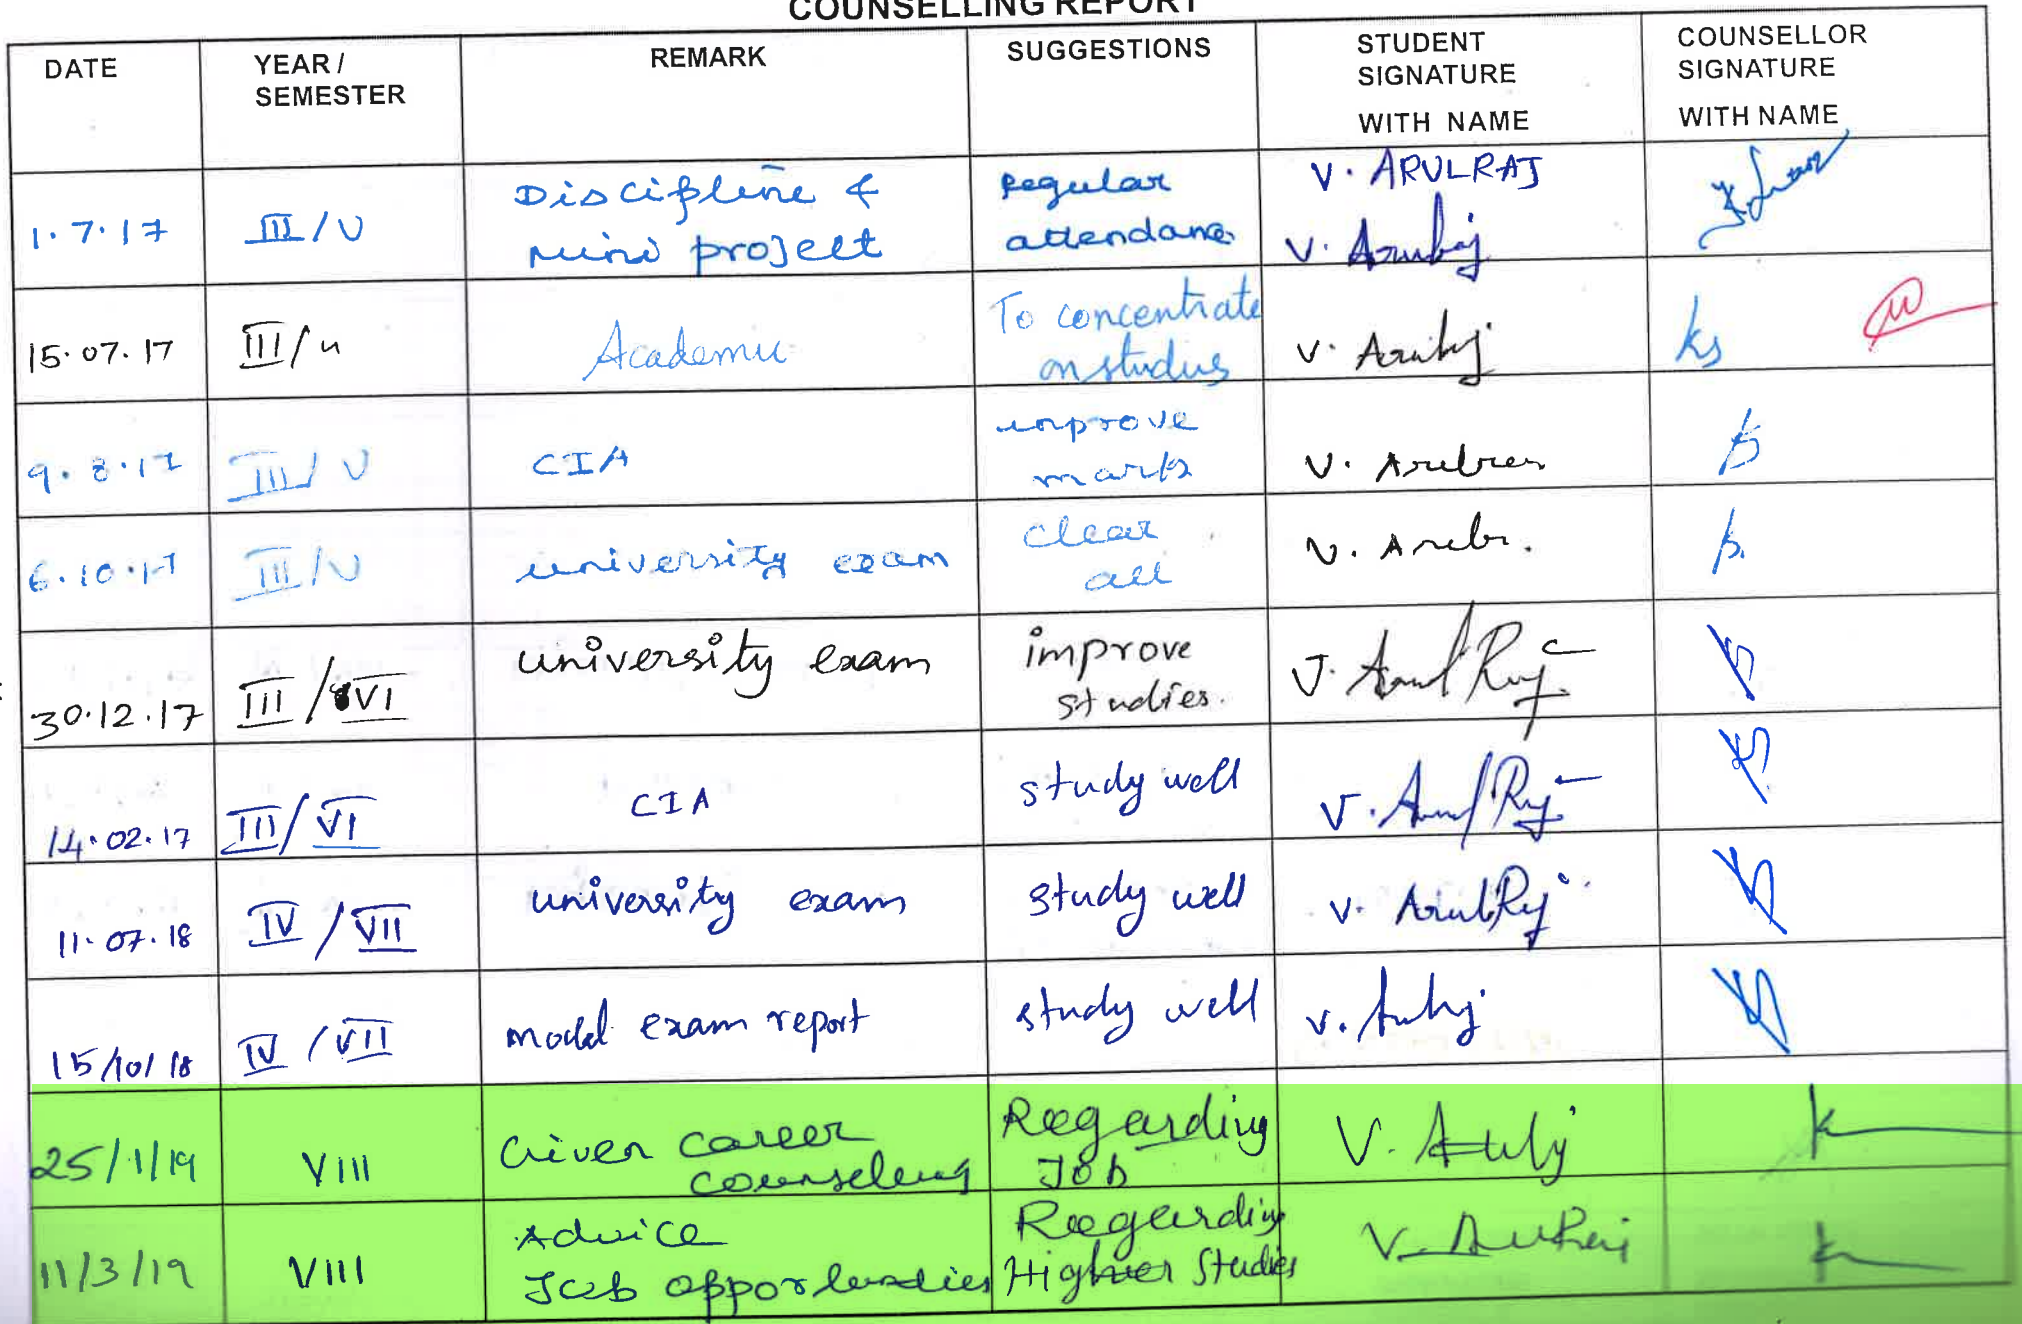 COUNSELLING REPORT
DATE
YEAR /
SEMESTER
REMARK
SUGGESTIONS
STUDENT
SIGNATURE
WITH NAME
COUNSELLOR
SIGNATURE
WITH NAME
1.7.17
III/V
Discipline &
mini project
Regular
attendance
V. ARULRAJ
V. Arulraj
15.07.17
III/
Academic
To concentrate
on studies
V. Arulraj
ks
9.8.17
III/V
CIA
improve
marks
V.
6.10.17
III/V
university exam
clear
all
V.
30.12.17
III/VI
university exam
improve
studies.
V. Arul Raj
14.02.17
III/VI
CIA
study well
V. Arul Raj
11.07.18
IV/VII
university exam
study well
V. Arul Raj
15/10/18
IV/VII
model exam report
study well
V.
25/1/19
VIII
Given career
counseling
Regarding
Job
V.
11/3/19
VIII
Advice
Job opportunities
Regarding
Higher Studies
V.